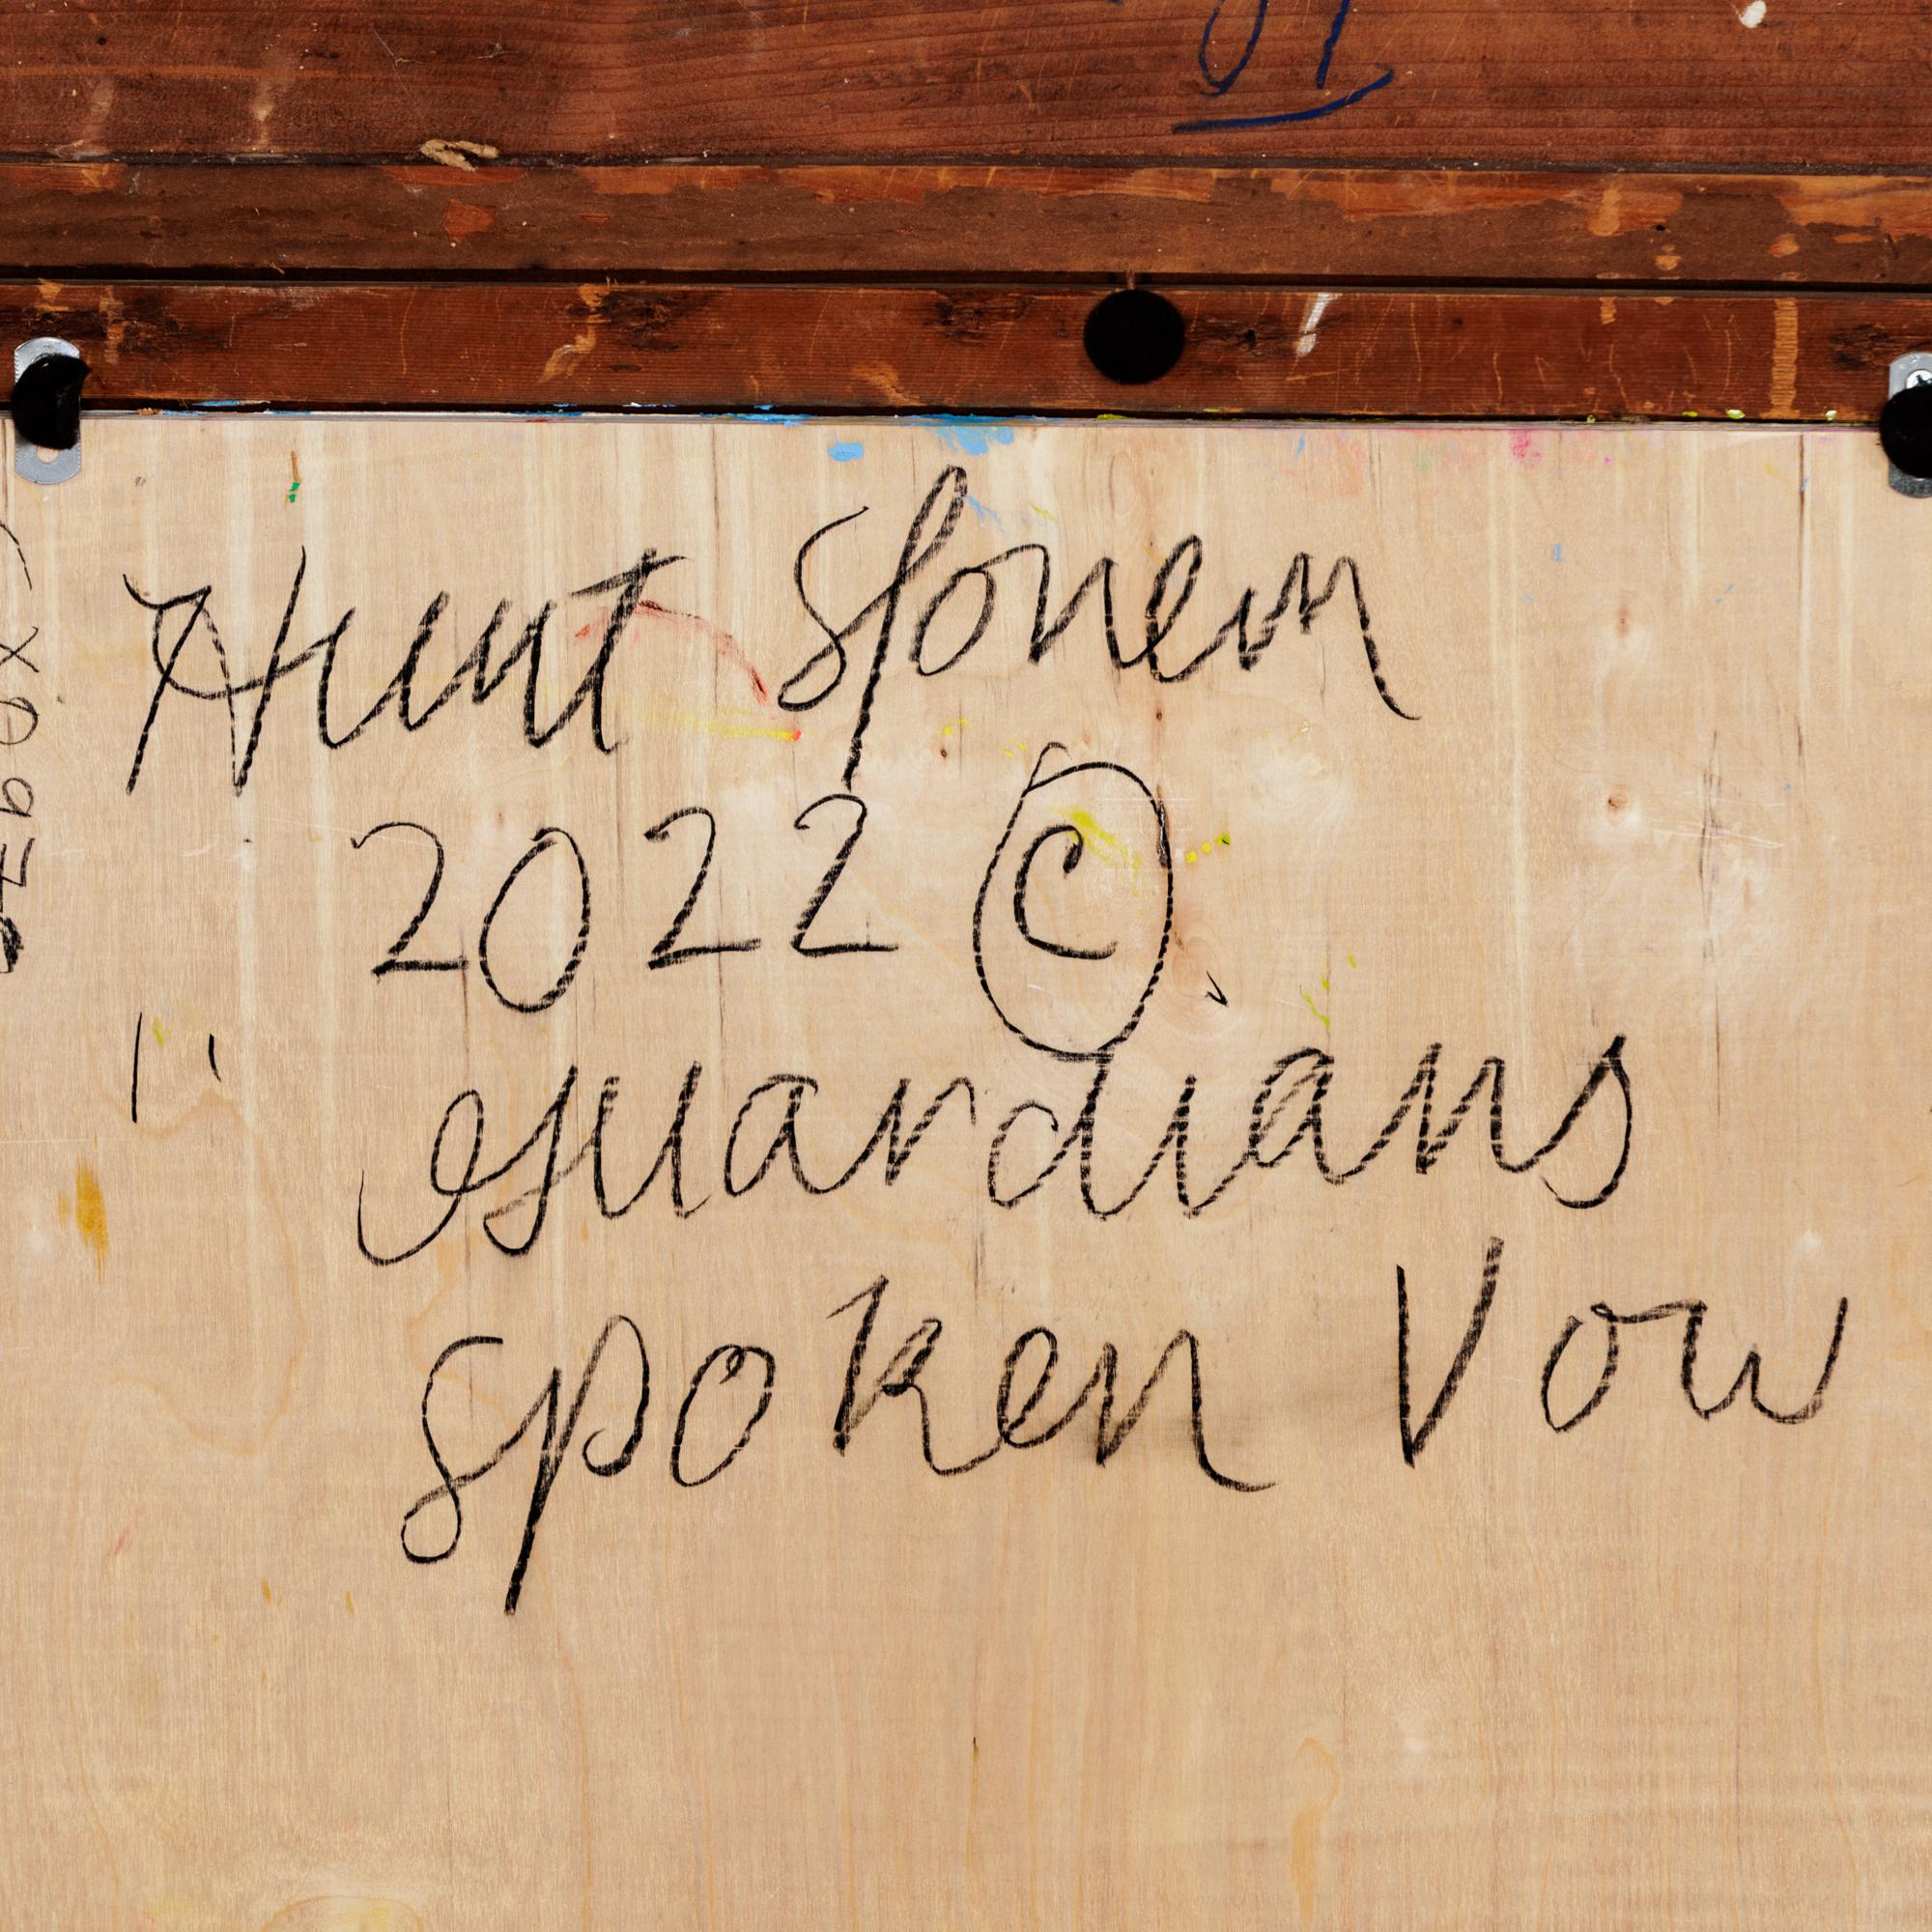 Hunt Slonem
2022 ©
"Guardians
Spoken Vow